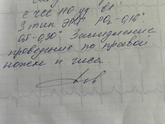 с ЧСС 110 уд
3 тип ЭКГ PQ-0,16"
QS-0,80" Замедление
проведение по правой
ножке п. Гиса.